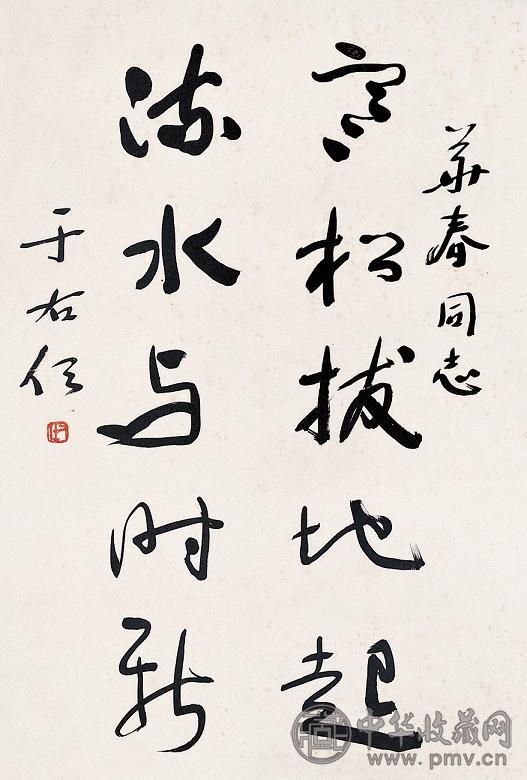 華春同志
寒松拔地起
流水与时新
于右任
中华收藏网
www.pmv.cn